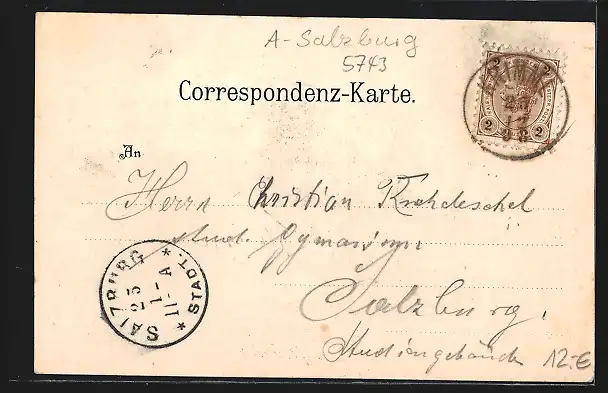 A-Salzburg
5743
Correspondenz-Karte.
2 2
2 2
An
Herrn Christian
stud.
Salzburg.
Studiengebäude
12.-€
SALZBURG
23
1-
11-A
* STADT. *